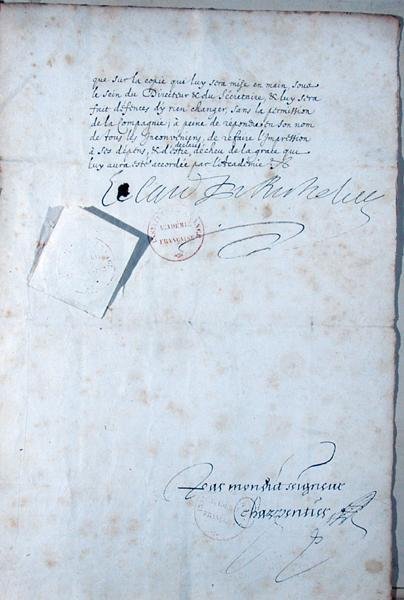 que sur la copie que luy sera mise en main, sous
le sein du Directeur & du Sécretaire, & luy sera
fait défences dy rien changer, sans la permission
de la Compagnie, à peine de répondre en son nom
de tous les Inconvéniens, de refaire l'Impression
à ses dépens, & d'estre declaré décheu de la grace que
luy aura estée accordée par l'Académie
Le Card. De Richelieu
INSTITUT DE FRANCE
ACADÉMIE
FRANÇAISE
Par mondit seigneur
Charpentier